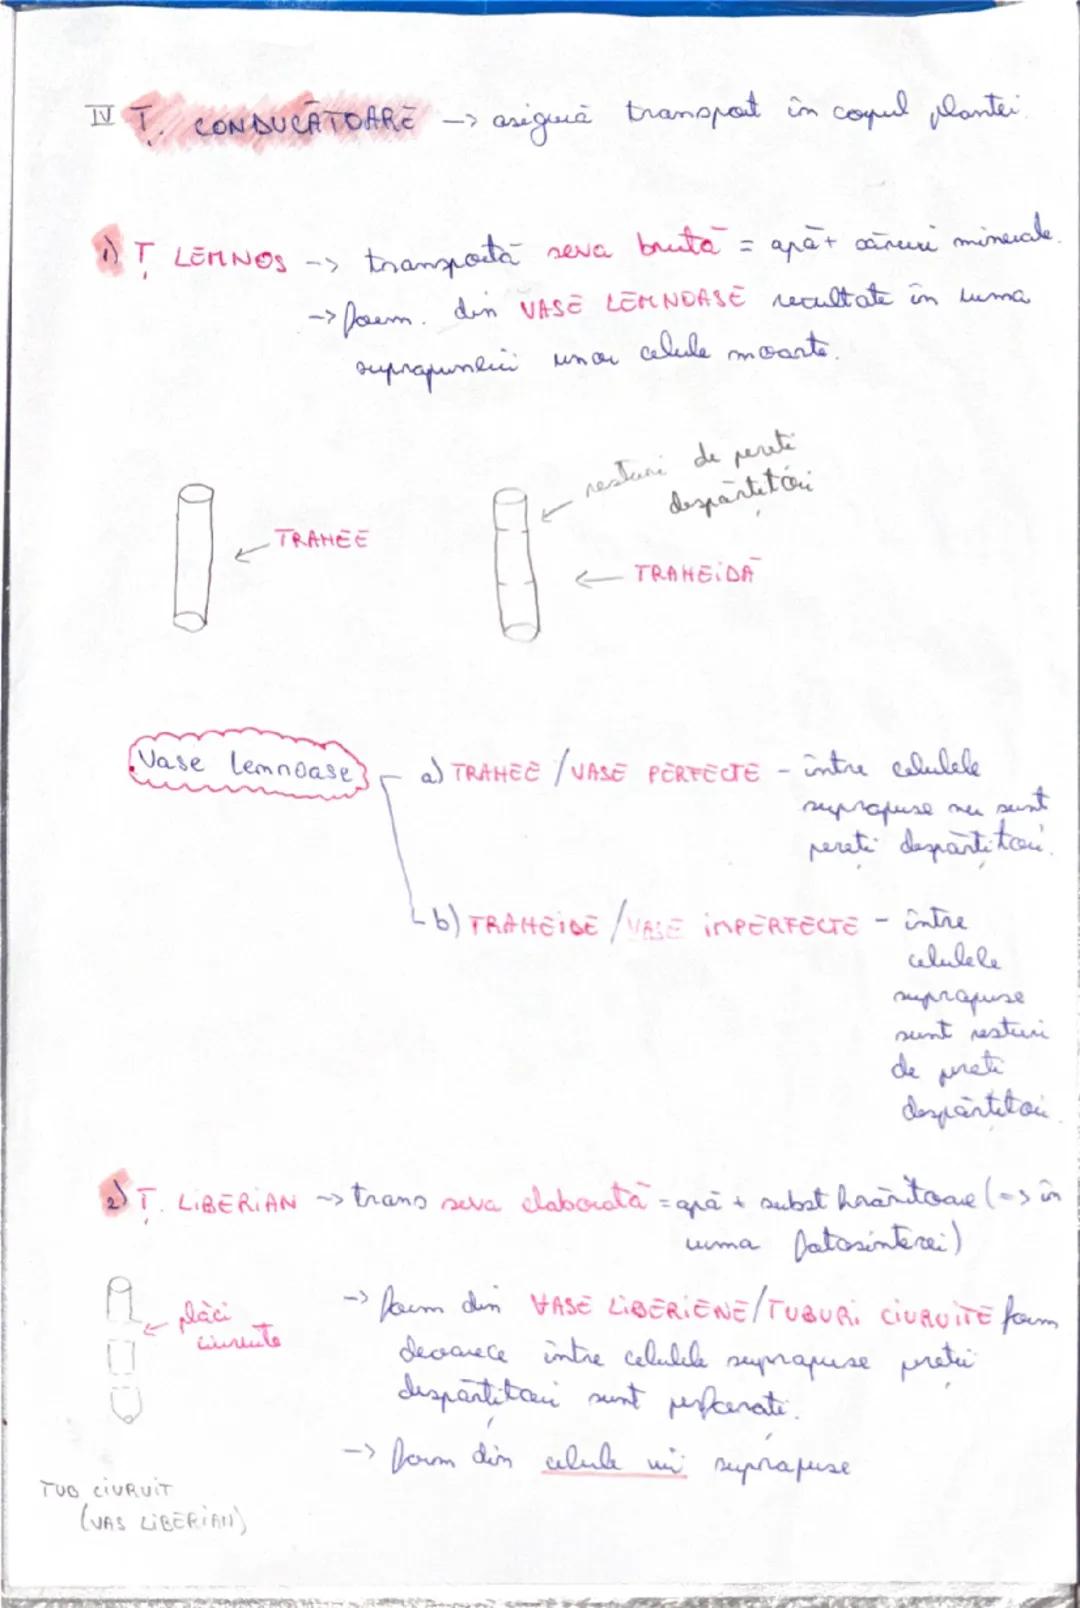 IV Ț. CONDUCĂTOARE -> asigură transport în corpul plantei.
1) Ț LEMNOS -> transportă seva brută = apă + săruri minerale.
-> form. din VASE LEMNOASE rezultate în urma
suprapunerii unor celule moarte.
resturi de pereți
despărțitori
TRAHEE
TRAHEIDĂ
Vase lemnoase
a) TRAHEE / VASE PERFECTE - între celulele
suprapuse nu sunt
pereți despărțitori.
b) TRAHEIDE / VASE IMPERFECTE - între
celulele
suprapuse
sunt resturi
de pereți
despărțitori.
2) Ț. LIBERIAN -> trans seva elaborată = apă + subst hrănitoare (=> în
urma fotosintezei)
plăci
ciuruite
-> form din VASE LIBERIENE/TUBURI CIURUITE form
deoarece între celulele suprapuse pereții
despărțitori sunt perforați.
-> form din celule vii suprapuse
TUB CIURUIT
(VAS LIBERIAN)